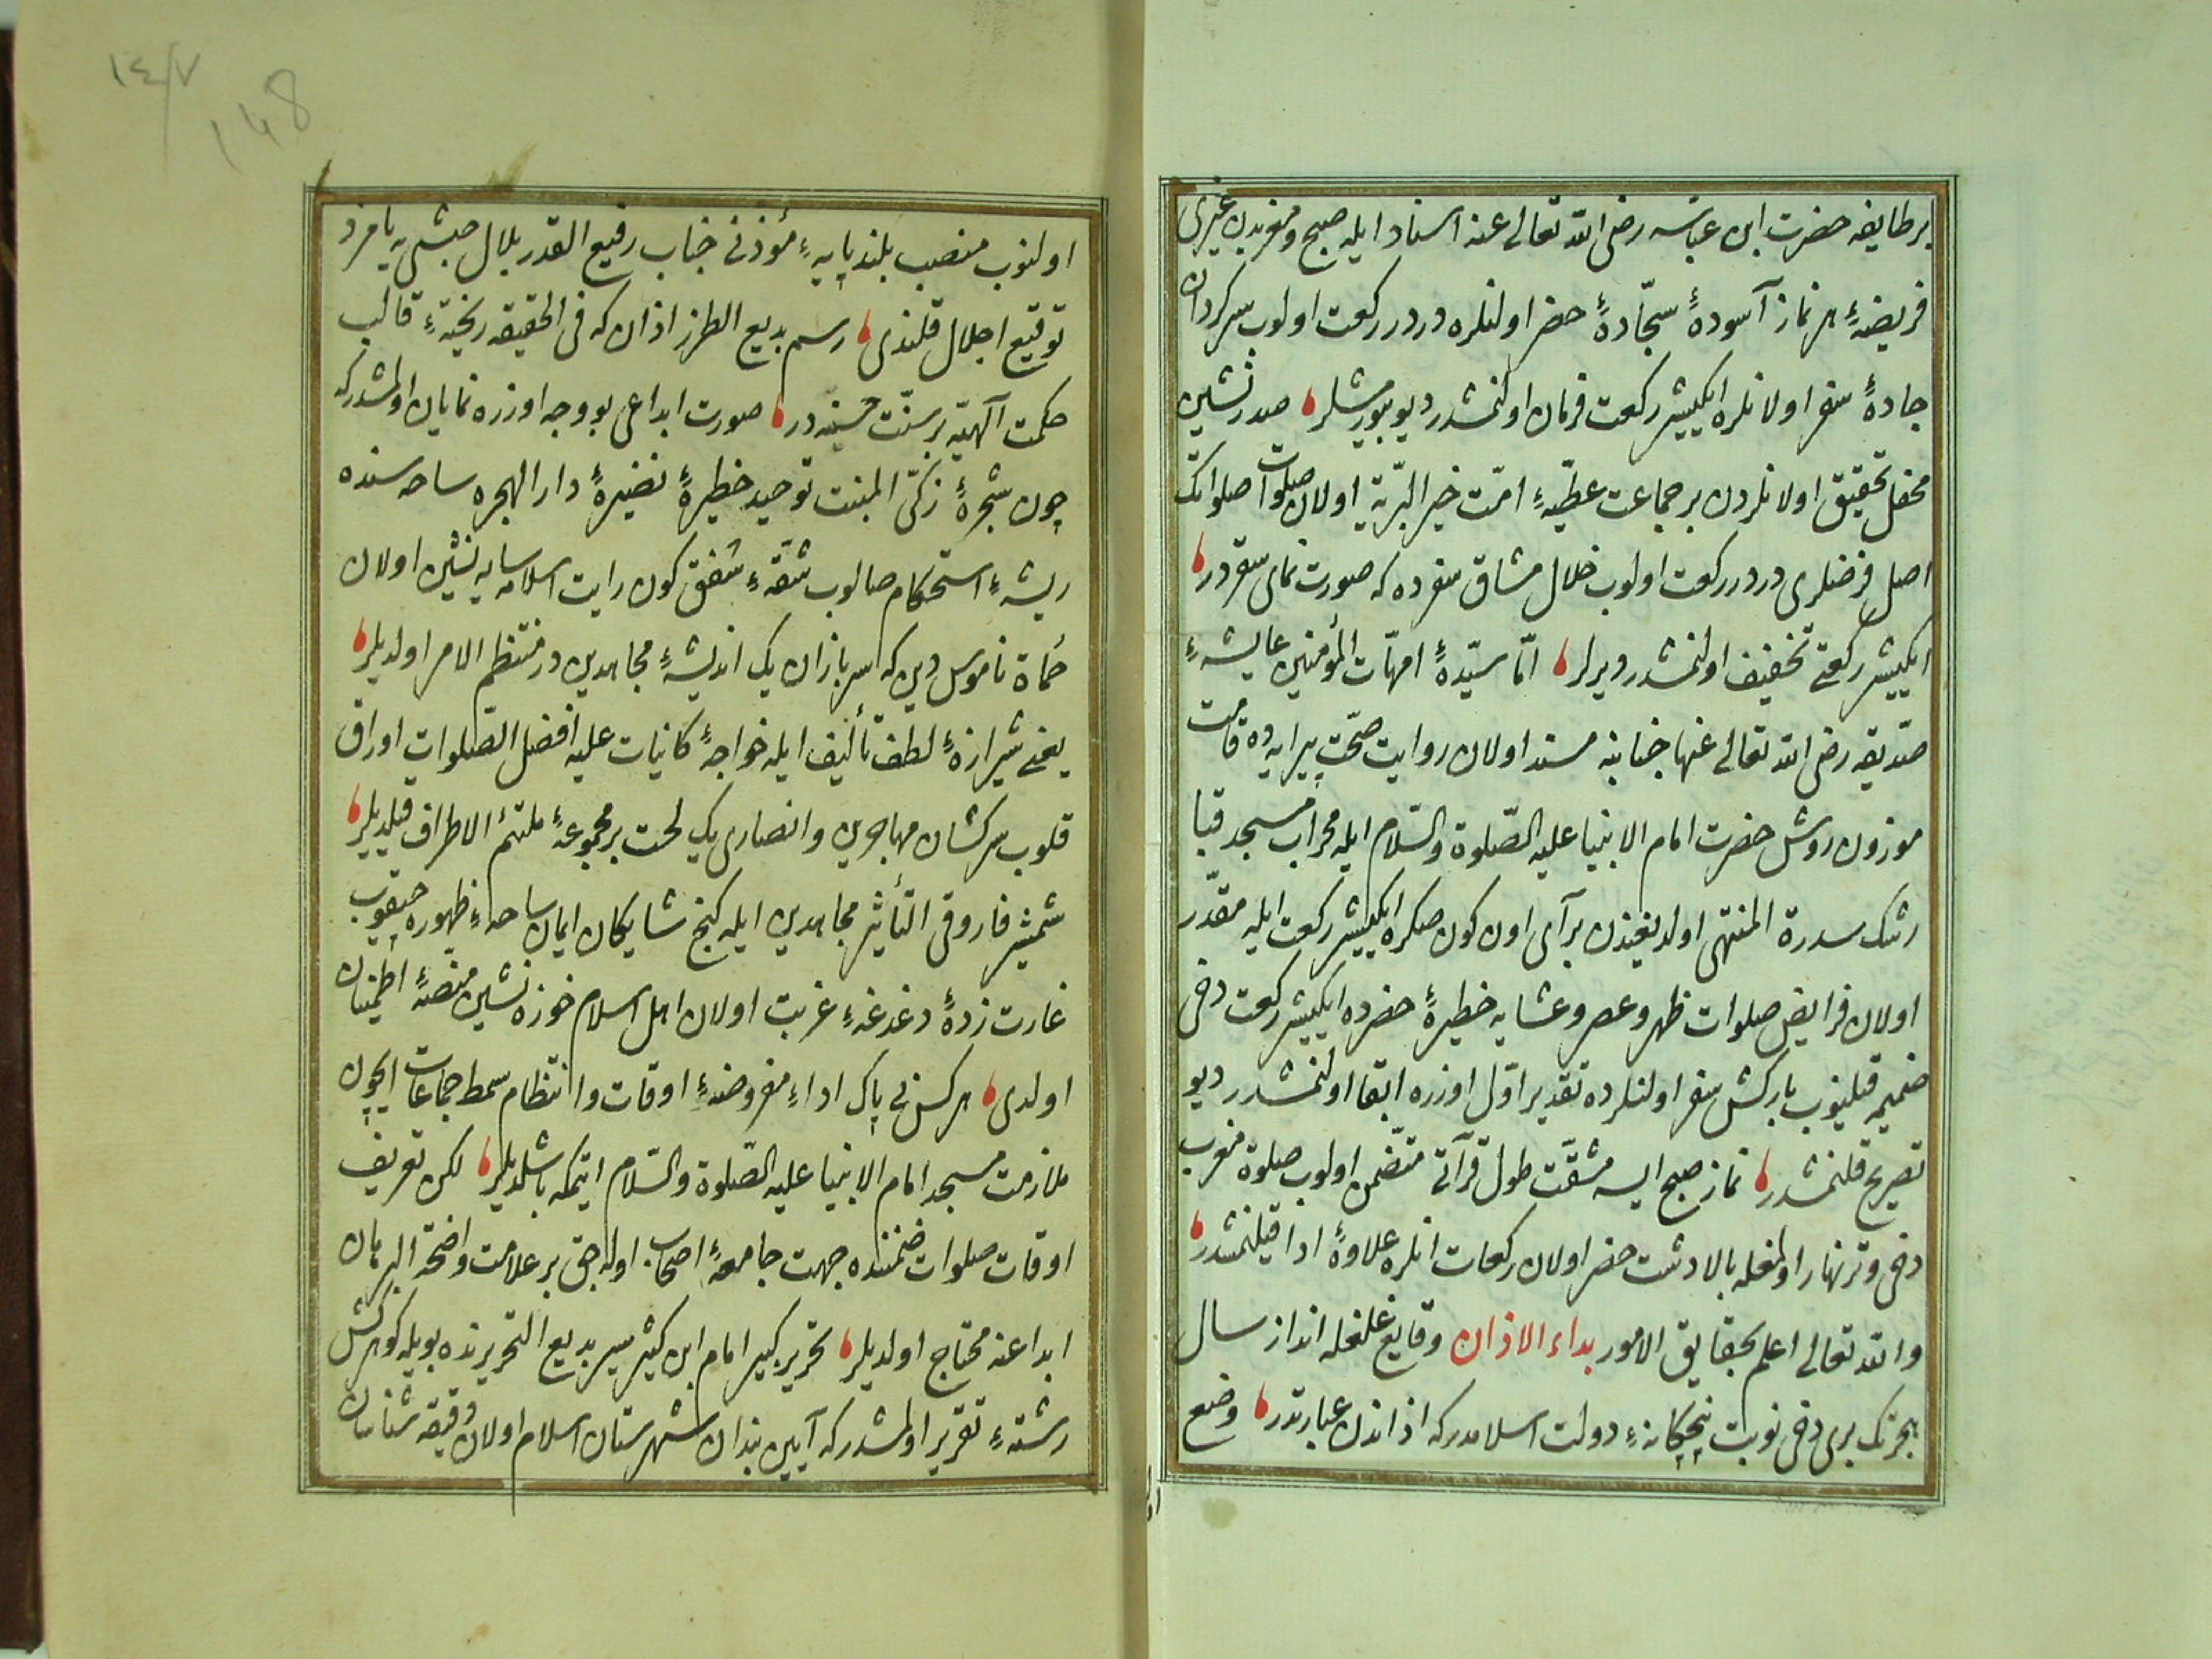 بر طایفه حضرت ابن عباسه رضی الله تعالی عنه اسناد ایله صبح و مغربدن غیری
فریضهٔ هر نماز آسودهٔ سجّادهٔ حضر اولنلره دردر ركعت اولوب سركردان
جادهٔ سفر اولانلره ایكیشر ركعت فرمان اولنمشدر دیو بیورمشلر صدرنشین
محفل تحقیق اولانلردن بر جماعت عطیّهٔ امّت خیر البرّیّه اولان صلوات صلواتك
اصل فرضلری دردر ركعت اولوب خلال مشاق سفرده كه صورت نمای سقردر
ایكیشر ركعتی تخفیف اولنمشدر دیرلر امّا سیّدهٔ امهّات المؤمنین عایشهٔ
صدّیقه رضی الله تعالی عنها جنابنه مسند اولان روایت صحّت پیرایه ده قامت
موزون روش حضرت امام الانبیا علیه الصّلوة والسّلام ایله محراب مسجد قبا
رشك سدرة المنتهی اولدیغندن بر آی اون كون صكره ایكیشر ركعت ایله مقدّر
اولان فرایض صلوات ظهر و عصر و عشایه خطیرهٔ حضرده ایكیشر ركعت دخی
ضمیمه قیلنوب باركش سفر اولنلرده تقدیر اوّل اوزره ابقا اولنمشدر دیو
تصریح قلنمشدر نماز صبح ایسه مشقّت طول قرآتی متضمّن اولوب صلوة مغرب
دخی وتر نهار اولمغله بالادست حضر اولان ركعات انلره علاوهٔ ادا قیلنمشدر
والله تعالی اعلم بحقایق الامور بداء الاذان وقایع غلغله انداز سال
هجرتك بری دخی نوبت پنجكانهٔ دولت اسلامدركه اذاندن عبارتدر وضع
اولنوب منصب بلند پایهٔ مؤذنی جناب رفیع القدر بلال حبشی یه نامزد
توقیع اجلال قلندی رسم بدیع الطرز اذان كه فی الحقیقه ریختهٔ قالب
حكمت آلهیّه بر سنّت حسنه در صورت ابداعی بو وجه اوزره نمایان اولمشدركه
چون شجرهٔ زكیّ المنبت توحید خطیرهٔ نضیرهٔ دار الهجره ساحه سنده
ریشهٔ استحكام صالوب شقّهٔ شفق كون رایت اسلامه سایه نشین اولان
حماة ناموس دین كه سربازان یك اندیشهٔ مجاهدین در منتظم الامر اولدیلر
یعنی شیرازهٔ لطف تألیف ایله خواجهٔ كانیات علیه افضل الصّلوات اوراق
قلوب سركشان مهاجرین و انصاری یك لخت بر مجموعهٔ ملتئم الاطراف قیلدیلر
شمشیر فاروقی التّأثیر مجاهدین ایله كنج شایكان ایمان ساحهٔ ظهوره چیقوب
غارت زدهٔ دغدغهٔ غربت اولان اهل اسلام خوزه نشین منصّهٔ اطمینان
اولدی هركس بی باك اداءِ مفروضهٔ اوقات و انتظام سمط جماعات ایچون
ملازمت مسجد امام الانبیا علیه الصّلوة والسّلام ایتمكه باشلدیلر لكن تعریف
اوقات صلوات ضمننده جهت جامعهٔ اصحاب اوله جق بر علامت واضحة البرهان
ابداعنه محتاج اولدیلر تحریر كبیر امام ابن كثیر سیر بدیع التحریرنده بویله كوهركش
رشتهٔ تقریر اولمشدركه آیین بندان شهرستان اسلام اولان دقیقه شناسان